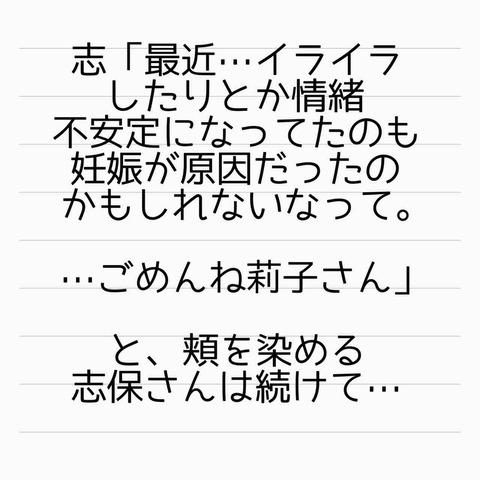 志「最近…イライラ
したりとか情緒
不安定になってたのも
妊娠が原因だったの
かもしれないなって。
…ごめんね莉子さん」
と、頬を染める
志保さんは続けて…